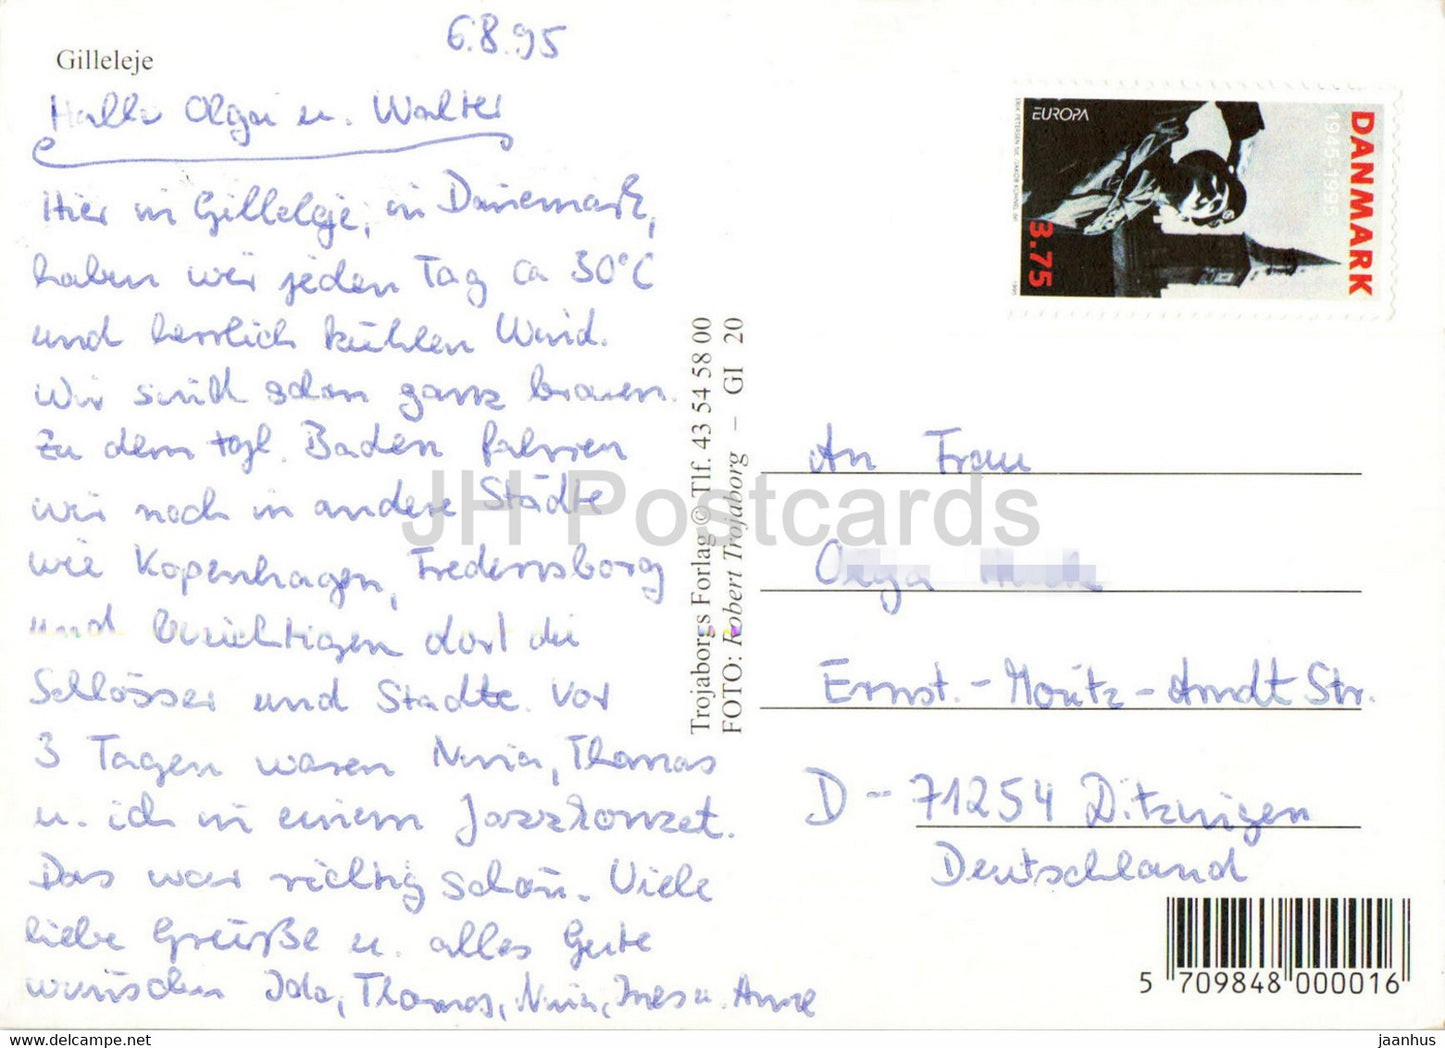 Gilleleje
6.8.95
Hallo Olga u. Walter
Hier in Gilleleje, in Dänemark,
haben wir jeden Tag ca 30°C
und herrlich kühlen Wind.
Wir sind schon ganz braun.
Zu dem tgl. Baden fahren
wir noch in andere Städte
wie Kopenhagen, Fredensborg
und besichtigen dort die
Schlösser und Städte. Vor
3 Tagen waren Nina, Thomas
u. ich in einem Jazzkonzet.
Das war richtig schön. Viele
liebe Grüße u. alles Gute
wünschen Ida, Thomas, Nina, Ines u. Anne
Trojaborgs Forlag © Tlf. 43 54 58 00
FOTO: Robert Trojaborg – GI 20
DANMARK
1945-1995
EUROPA
3.75
1995
An Frau
Olga
Ernst.-Moritz-Arndt Str.
D-71254 Ditzingen
Deutschland
5 709848 000016
JH Postcards
jaanhus
www.delcampe.net